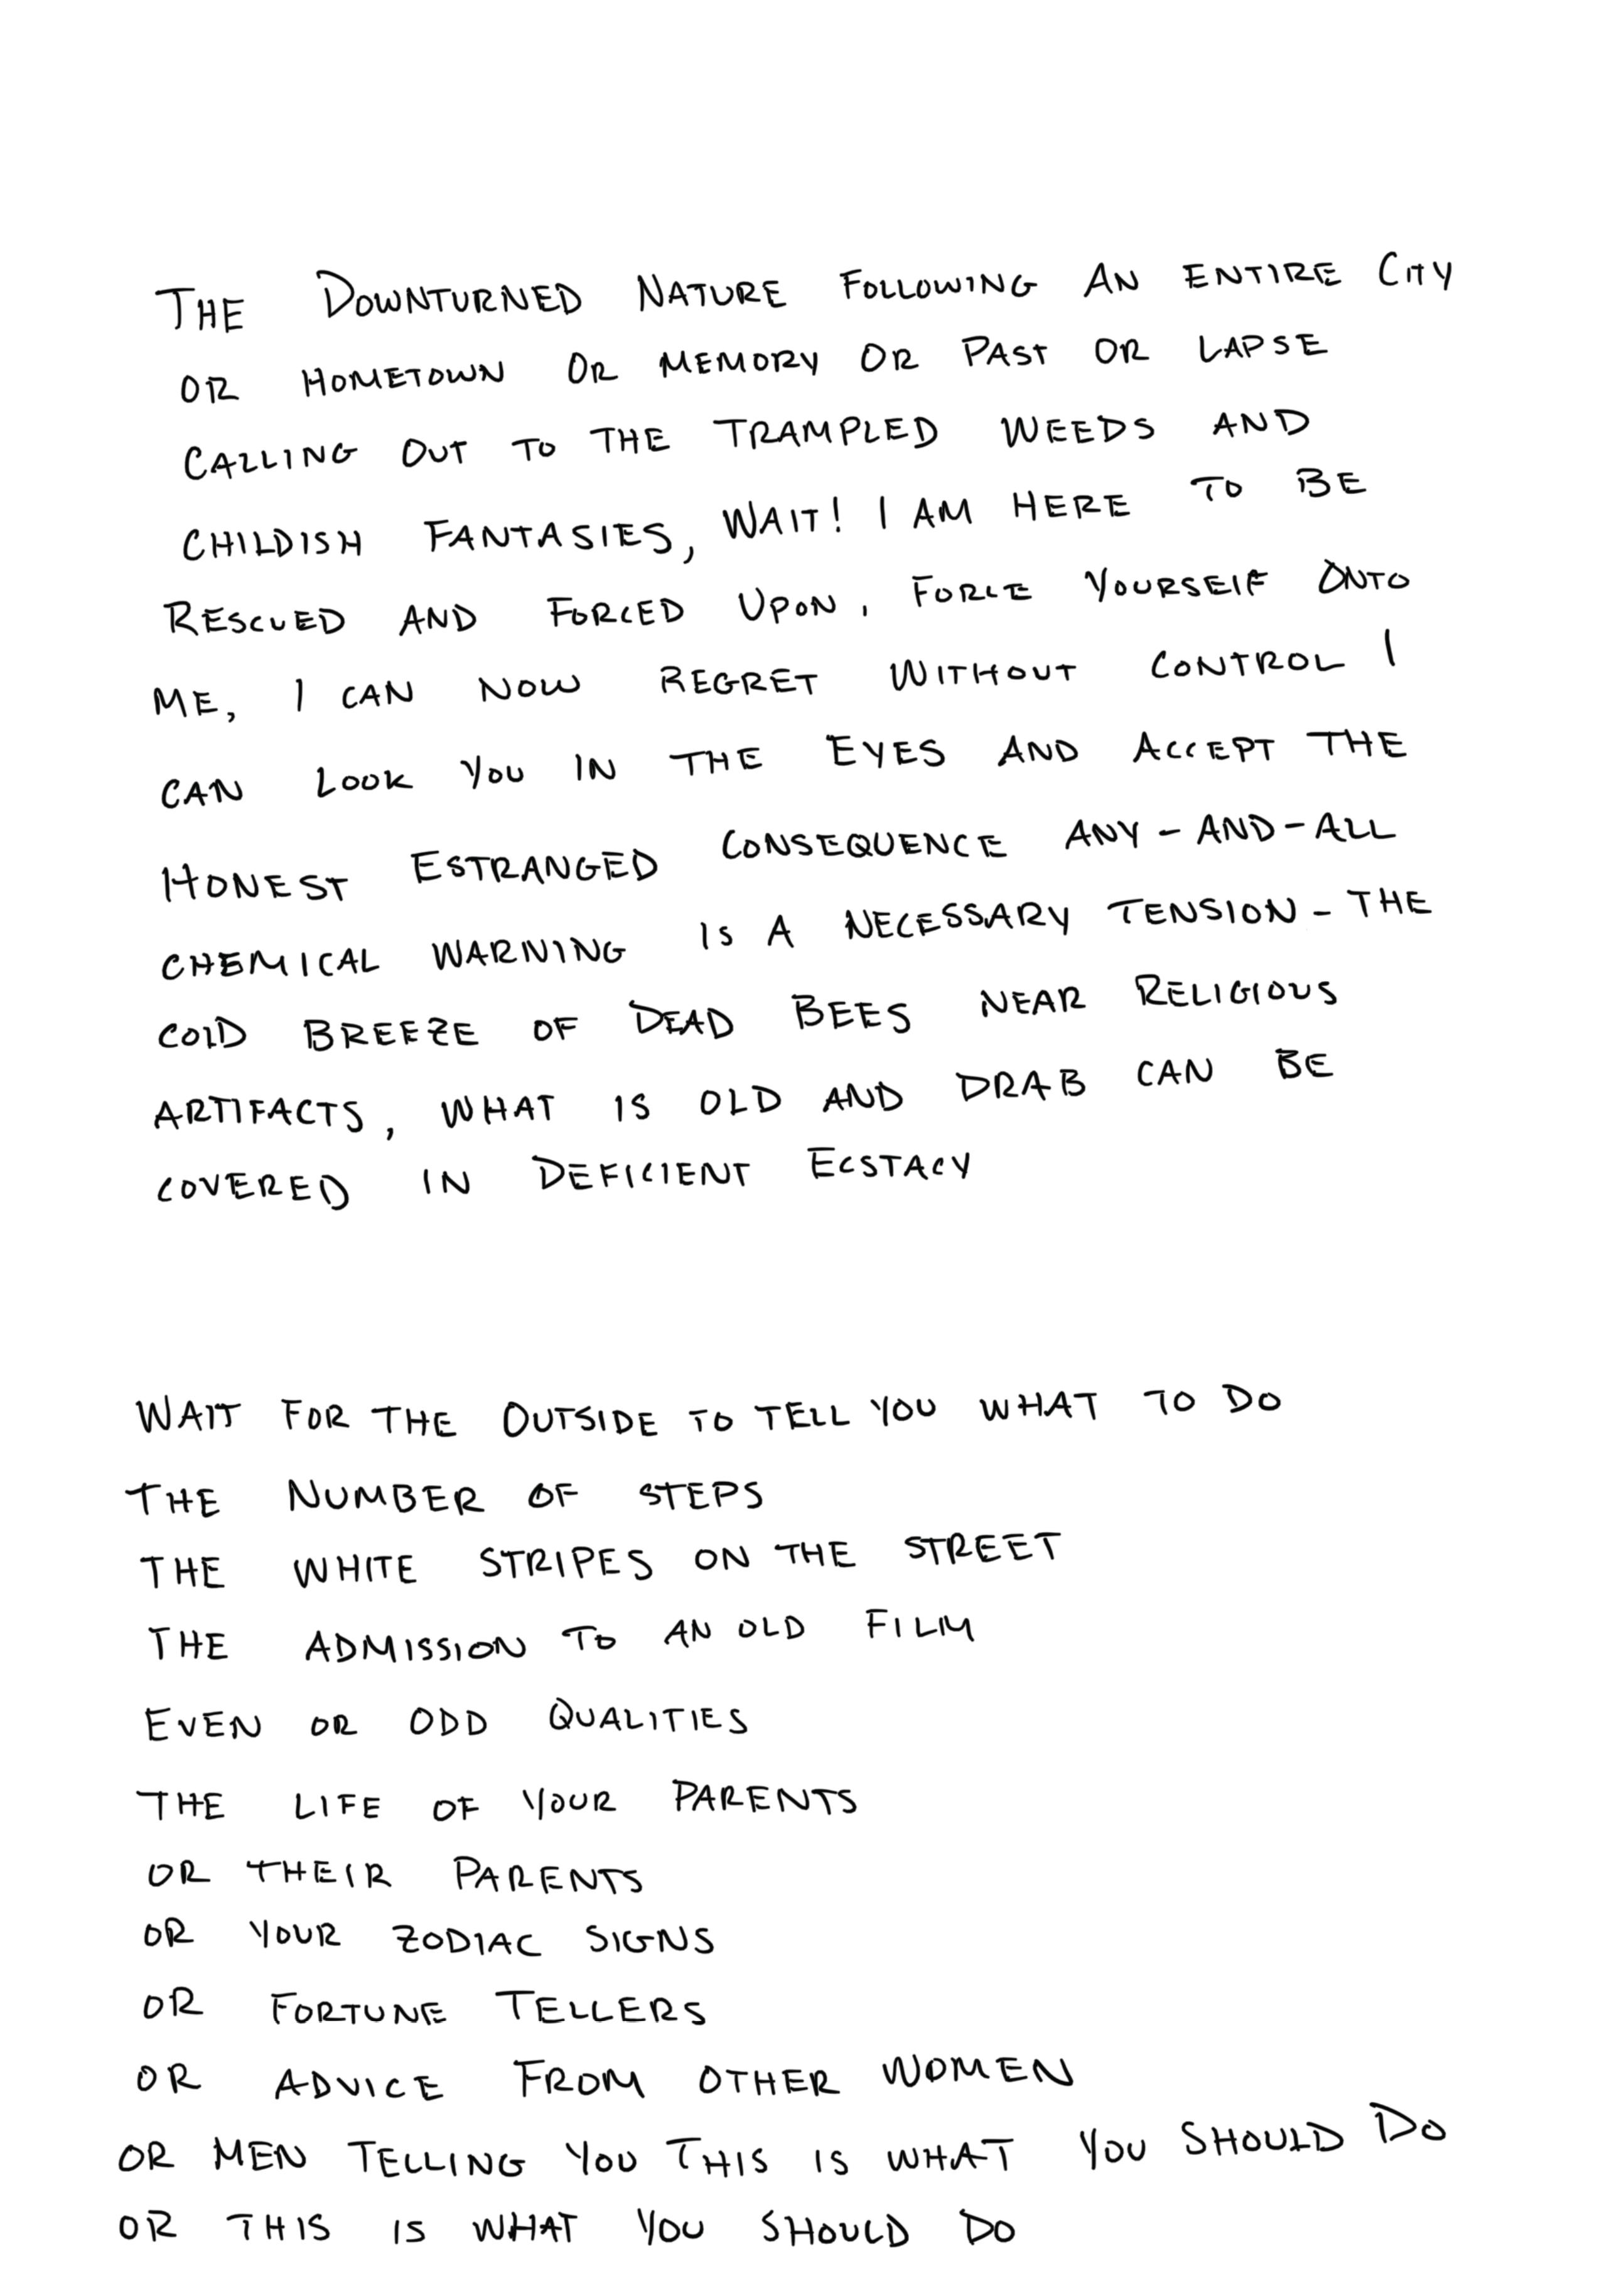 THE DOWNTURNED NATURE FOLLOWING AN ENTIRE CITY
OR HOMETOWN OR MEMORY OR PAST OR LAPSE
CALLING OUT TO THE TRAMPLED WEEDS AND
CHILDISH FANTASIES, WAIT! I AM HERE TO BE
RESCUED AND FORCED UPON, FORCE YOURSELF ONTO
ME, I CAN NOW REGRET WITHOUT CONTROL I
CAN LOOK YOU IN THE EYES AND ACCEPT THE
HONEST ESTRANGED CONSEQUENCE ANY-AND-ALL
CHEMICAL WARNING IS A NECESSARY TENSION - THE
COLD BREEZE OF DEAD BEES NEAR RELIGIOUS
ARTIFACTS, WHAT IS OLD AND DRAB CAN BE
COVERED IN DEFICIENT ECSTACY
WAIT FOR THE OUTSIDE TO TELL YOU WHAT TO DO
THE NUMBER OF STEPS
THE WHITE STRIPES ON THE STREET
THE ADMISSION TO AN OLD FILM
EVEN OR ODD QUALITIES
THE LIFE OF YOUR PARENTS
OR THEIR PARENTS
OR YOUR ZODIAC SIGNS
OR FORTUNE TELLERS
OR ADVICE FROM OTHER WOMEN
OR MEN TELLING YOU THIS IS WHAT YOU SHOULD DO
OR THIS IS WHAT YOU SHOULD DO